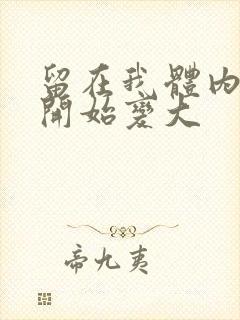 留在我體內
開始變大
帝九夷